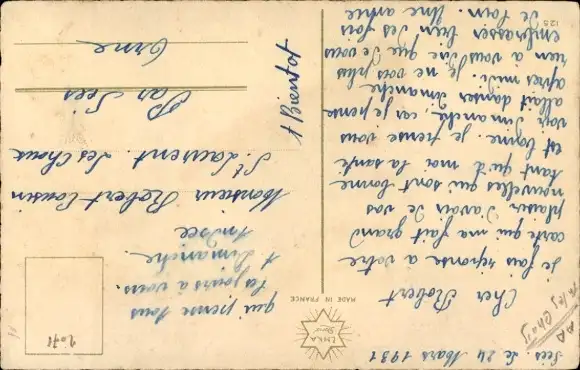 Sées. le 24 Mars 1931
Cher Robert
Je fais réponse a votre
carte qui ma fait grand
plaisir d'avoir de vos
nouvelles qui sont bonne
tant qu'à moi la santé
est bonne. je pense vous
voir dimanche, car je pense
allait danser dimanche
après midi. Je ne vois plus
rien a vous dire que de vous
embrasser bien des fois
de loin. Une amie
qui pense tous
les jours à vous.
t dimanche
Andrée
t Bientot
Monsieur Robert Cousin
St Laurent. Les Choux
Par Sées
Orne
MADE IN FRANCE
2071
125